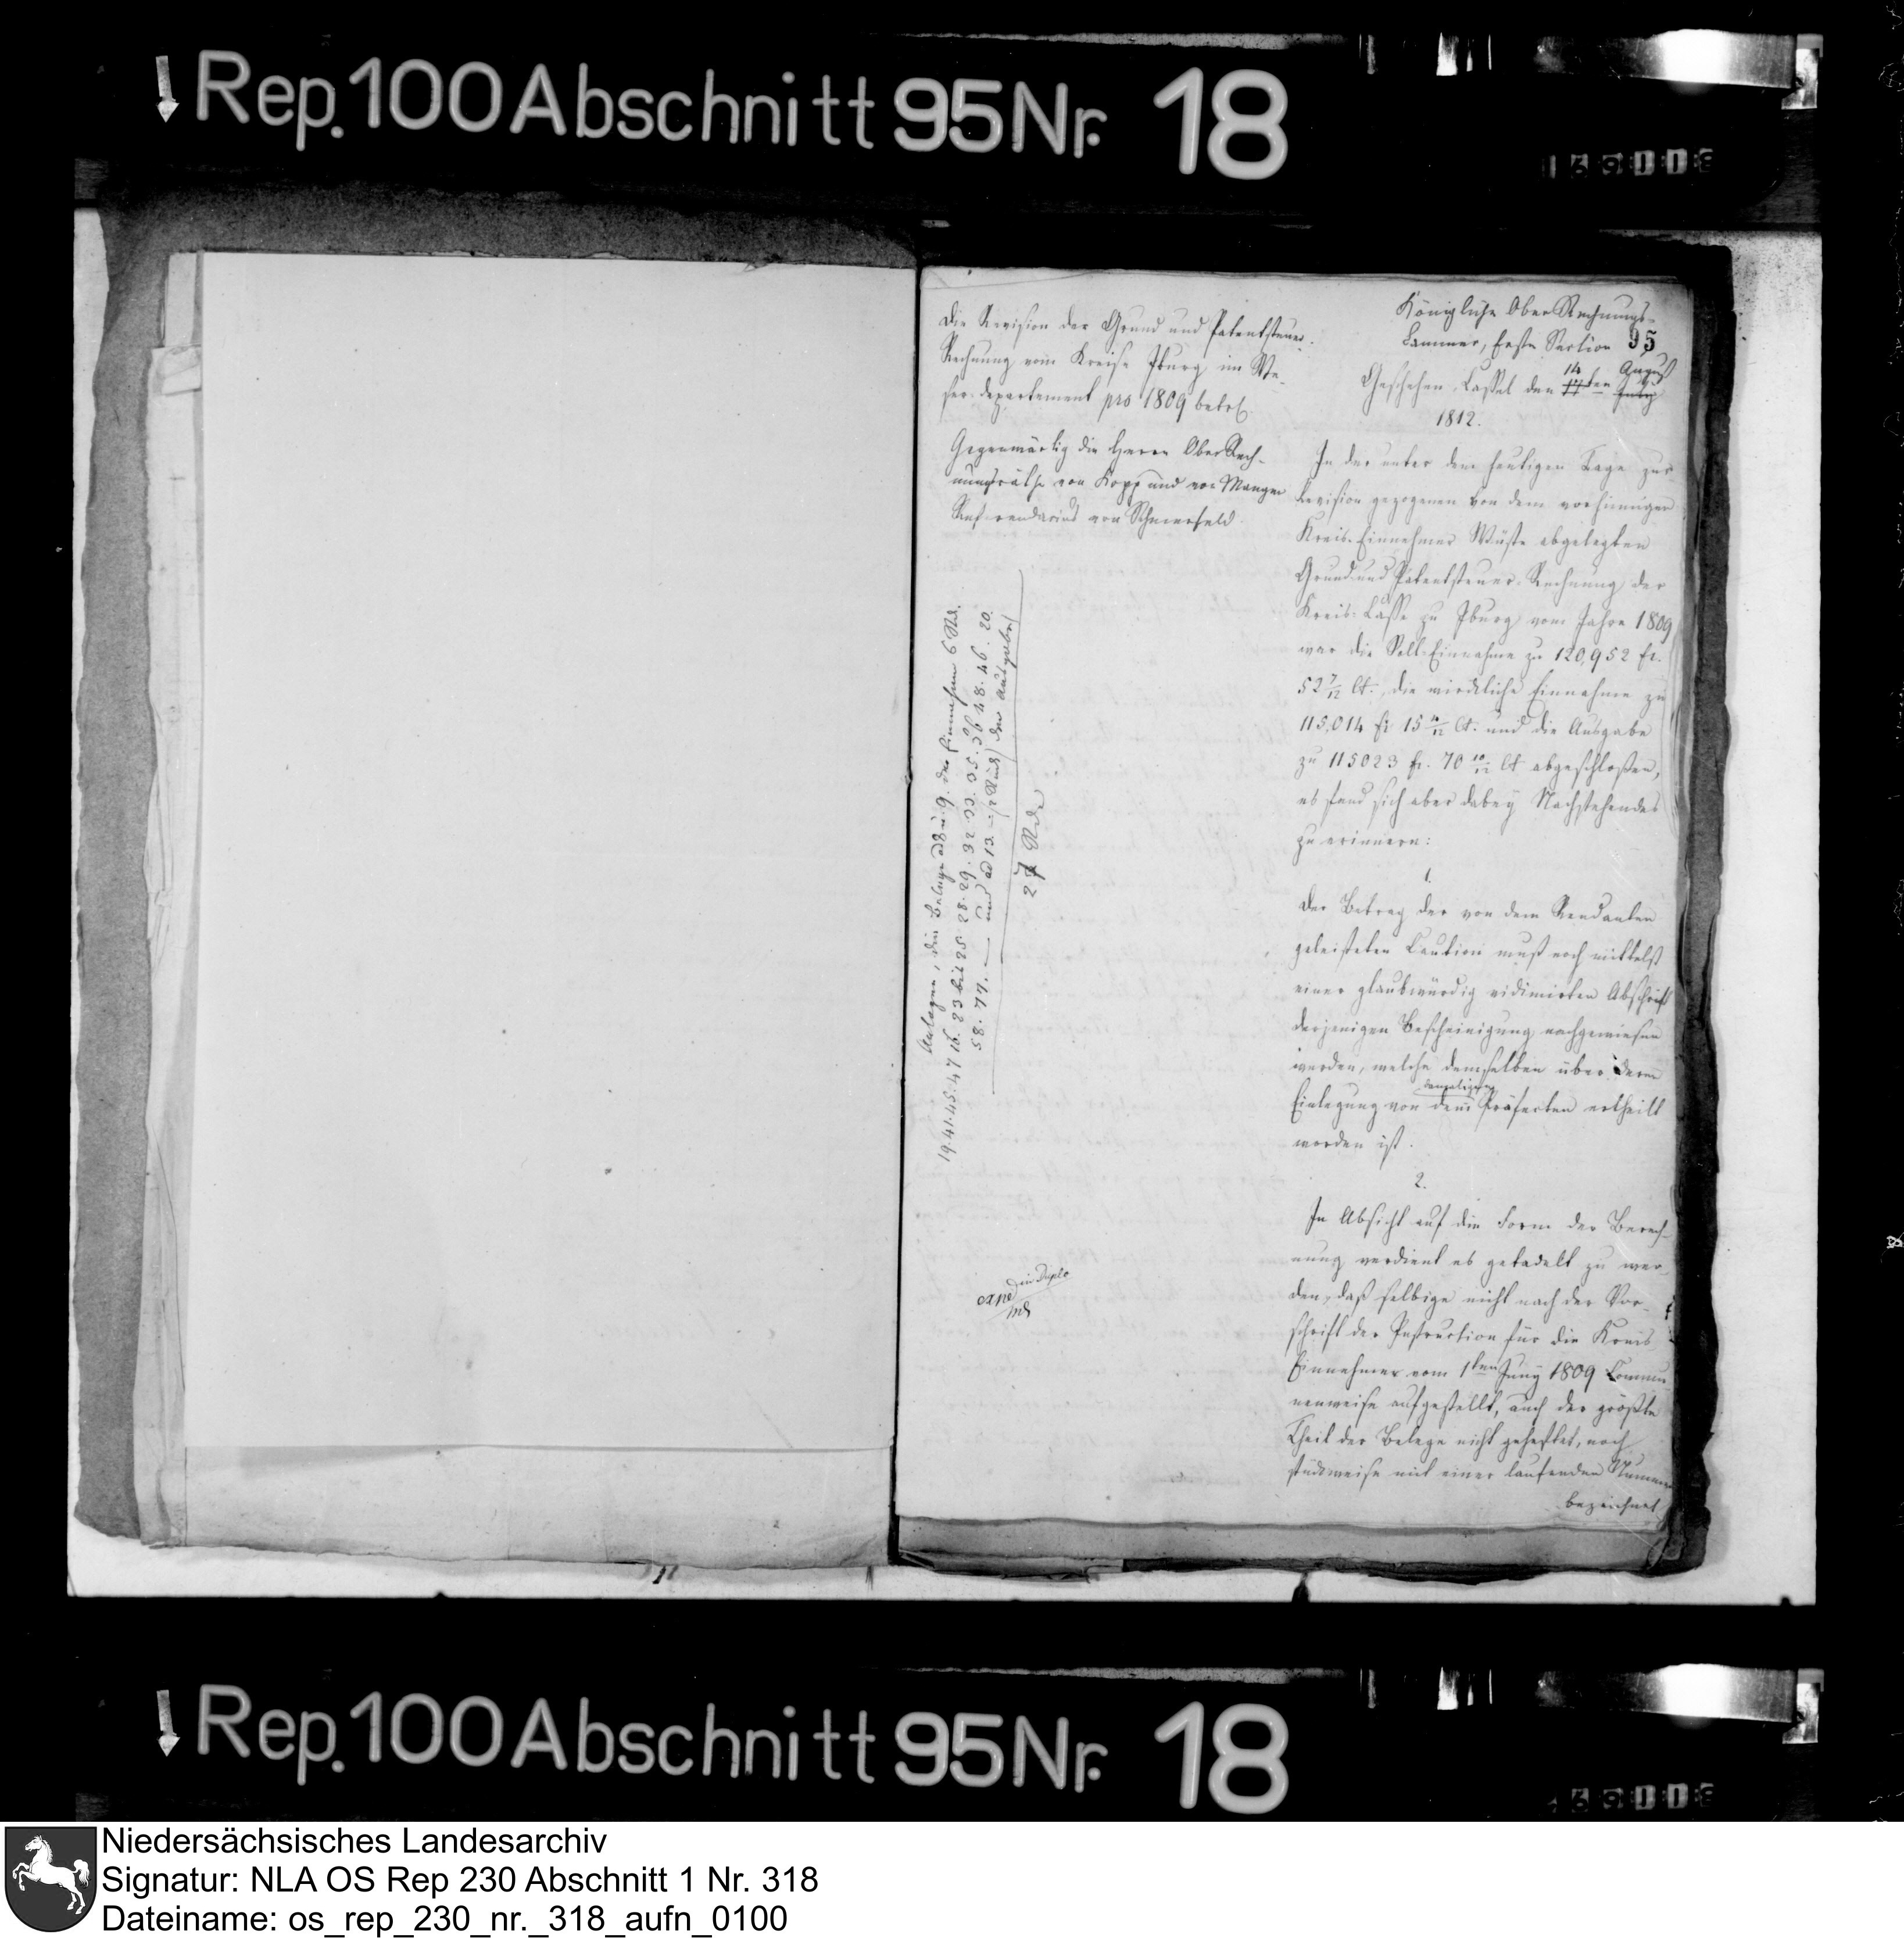 Rep. 100 Abschnitt 95 Nr. 18
Die Revision der Grund und Patentsteuer-
Rechnung vom Kreise Iburg im We-
ser-departement pro 1809 betr.
Gegenwärtig die Herren Ober Rech-
nungsräthe von Kopp und von Mangen
Referendarius von Schmerfeld
Königliche Ober Rechnungs-
Cammer, Erste Section
95
Geschehen Cassel den 14 ten August
1812.
In der unter dem heutigen Tage zur
Revision gezogenen von dem vorhinnigen
Kreis-Einnehmer Wüste abgelegten
Grund und Patentsteuer-Rechnung der
Kreis-Casse zu Iburg vom Jahre 1809
war die Soll-Einnahme zu 120,952 fr.
52 7/12 Ct., die wirckliche Einnahme zu
115,014 fr 15 4/12 Ct. und die Ausgabe
zu 115023 fr. 70 10/12 Ct abgeschloßen,
es fand sich aber dabey Nachstehendes
zu erinnern:
1.
Der Betrag der von dem Rendanten
geleisteten Caution muß noch mittelst
einer glaubwürdig vidimirten Abschrift
derjenigen Bescheinigung nachgewiesen
werden, welche demselben über deren
Einlegung von dem damaligen Präfecten ertheilt
worden ist.
2.
In Absicht auf die Form der Berech-
nung verdient es getadelt zu wer-
den, daß selbige nicht nach der Vor-
schrift der Instruction für die Kreis
Einnehmer vom 1ten Juny 1809 Commu-
nenweise aufgestellt, auch der größte
Theil der Belege nicht geheftet, noch
stückweise mit einer laufenden Nummer
bezeichnet
Anlagen, die Belege ad 8 u. 9. der Einnahme 6 Stck.
19. 41. 45. 47 16. 23 bis 25. 28. 29. 32. 33. 35. 36
58. 77. — und ad 13. der Ausgabe
27 Stck
expd in Duplo
Rep. 100 Abschnitt 95 Nr. 18
Niedersächsisches Landesarchiv
Signatur: NLA OS Rep 230 Abschnitt 1 Nr. 318
Dateiname: os_rep_230_nr._318_aufn_0100